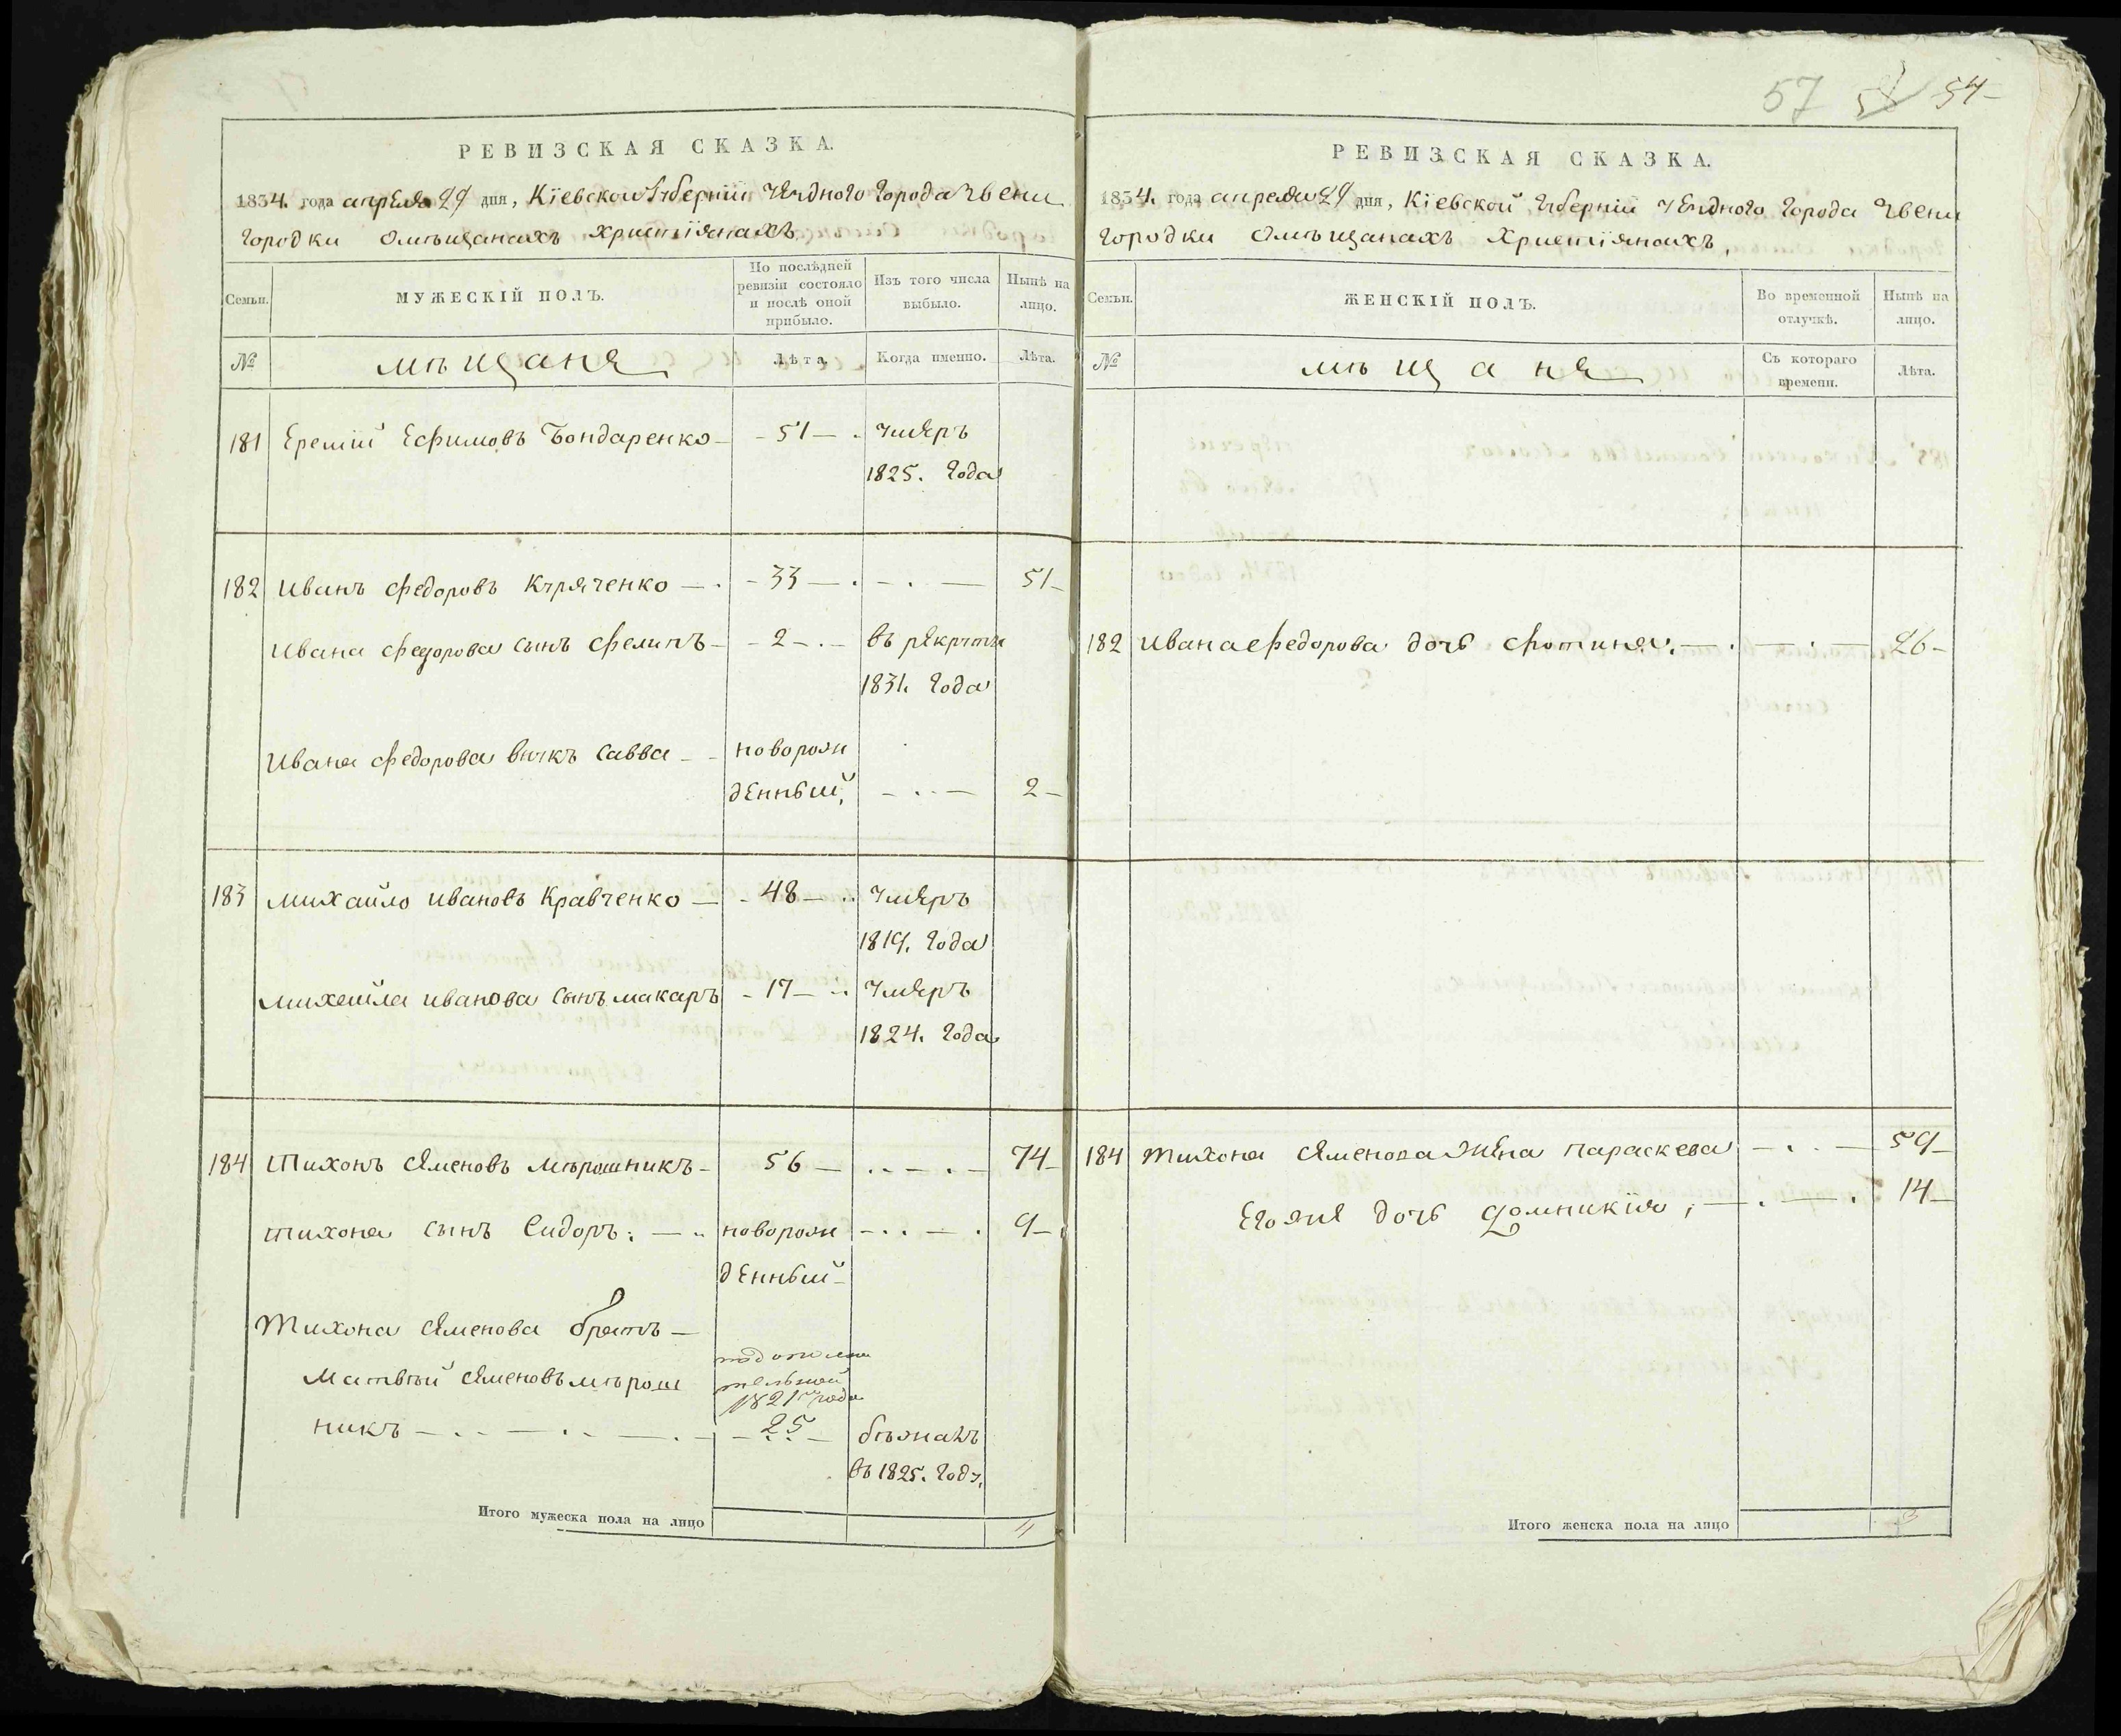 57 54
РЕВИЗСКАЯ СКАЗКА.
1834. года апреля 29 дня, Кіевской Губерніи Уезднего Города Звени
Городки Омѣщанахъ Христіянахъ
Семьи.
МУЖЕСКІЙ ПОЛЪ.
По послѣдней
ревизіи состояло
и послѣ оной
прибыло.
Изъ того числа
выбыло.
Нынѣ на
лицо.
№
мѣщане
Лѣта.
Когда именно.
Лѣта.
181 Еремій Ефимовъ Бондаренко - 51 - умеръ
1825. Года
182 Иванъ Федоровъ Куряченко - 33 - 51
Ивана Федорова сынъ Фелипъ - 2 - въ рекруты
1831. Года
Ивана Федорова внукъ Савва - новорож
денный, - 2
183 Михайло Ивановъ Кравченко - 48 - умеръ
1819. Года
Михайла Иванова сынъ Макаръ - 17 - умеръ
1824. Года
184 Тихонъ Семеновъ Мѣрошникъ - 56 - 74
Тихона сынъ Сидоръ: - новорож - 9
денный
Тихона Семенова братъ -
Матвѣй Семеновъ Мѣрош
никъ - 25 бѣжалъ
тельной
1821 года
въ 1825. Году,
Итого мужеска пола на лицо
РЕВИЗСКАЯ СКАЗКА.
1834. года апреля 29 дня, Кіевской Губерніи Уезднего Города Звени
Городки Омѣщанахъ Христіянахъ,
Семьи.
ЖЕНСКІЙ ПОЛЪ.
Во временной
отлучкѣ.
Нынѣ на
лицо.
№
мѣщане
Съ котораго
времени.
Лѣта.
182 Ивана Федорова дочь Фотиня. - 26
184 Тихона Семенова жена Параскева - 59
Его же дочь Домникія, - 14
Итого женска пола на лицо 3